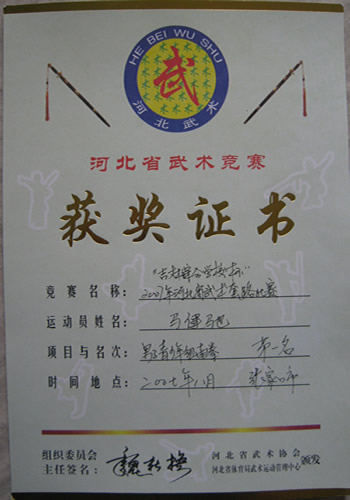 HE BEI WU SHU
武
河北武术
河北省武术竞赛
获奖证书
竞赛名称： 2007年河北省武术套路比赛
运动员姓名 马健
项目与名次： 男 青少年组南拳 第一名
时间地点： 二〇〇七年八月 张家口市
组织委员会
主任签名：
河北省武术协会
河北省体育局武术运动管理中心 颁发